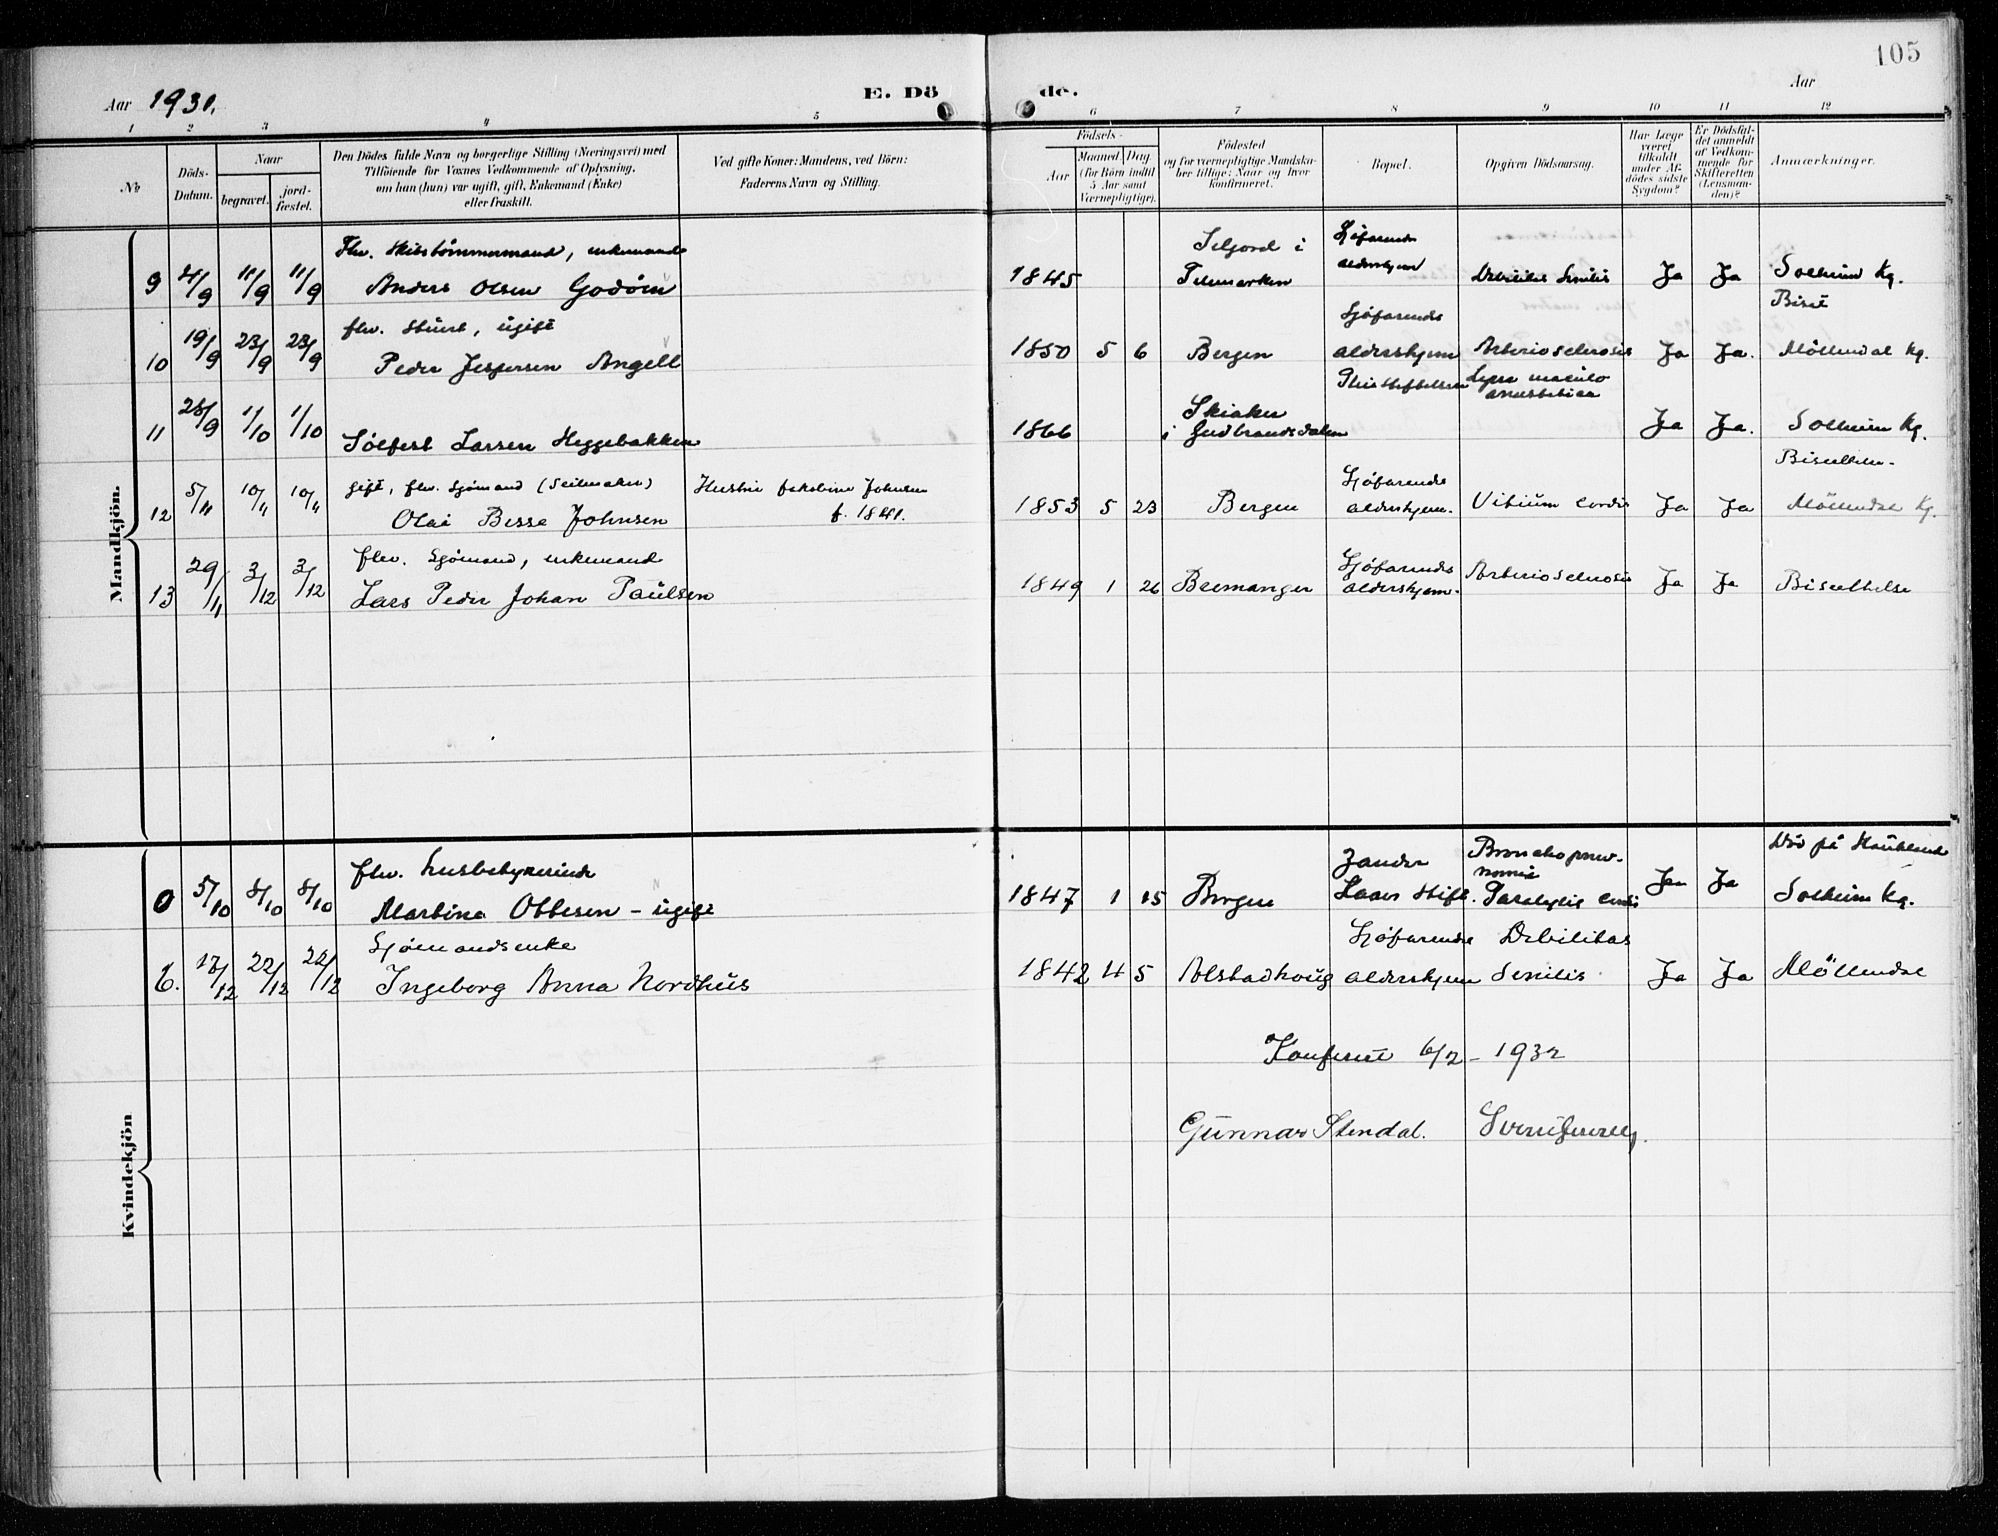 105
Aar 1931.
E. Dö
de.
Aar
1 2 3 4 5 6 7 8 9 10 11 12
No
Döds-Datum.
Naar
begravet.
jord-fæstet.
Den Dödes fulde Navn og borgerlige Stilling (Næringsvei) med
Tilföiende for Voxnes Vedkommende af Oplysning,
om han (hun) var ugift, gift, Enkemand (Enke)
eller fraskilt.
Ved gifte Koner: Mandens, ved Börn:
Faderens Navn og Stilling.
Födsels-
Aar
Maaned. Dag.
(for Börn indtil
5 Aar samt
Værnepligtige).
Födested
og for værnepligtige Mandska-
ber tillige: Naar og hvor
konfirmeret.
Bopæl.
Opgiven Dödsaarsag.
Har Læge
været
tilkaldt
under Af-
dödes sidste
Sygdom?
Er Dödsfal-
det anmeldt
af Vedkom-
mende for
Skifteretten
(Lensman-
den)?
Anmærkninger.
Mandkjön.
Flv. Skibstømmermand, enkemand
9 4/9 11/9 11/9 Anders Olsen Godøm
1845 Seljord i Telemarken Sjøfarendes aldershjem Debilitas Senilis Ja Ja Solheim Kg.
Biset
flv. Stuert, ugift
10 19/9 23/9 23/9 Peder Jespersen Angell
1850 5 6 Bergen Sjøfarendes aldershjem Arteriosclerosis Ja Ja. Möllendal Kg.
11 28/9 1/10 1/10 Sølfest Larsen Heggebakken
1866 Skiaker i Gudbrandsdalen Pleiestiftelsen Lepra maculo anæstetica Ja Ja. Solheim Kg.
Bisettelse.
gift, flv. Sjømand (Seilmaker)
12 5/11 10/11 10/11 Olai Besse Johnsen
Hustru Jakobine Johnsen
f. 1841.
1853 5 23 Bergen Sjøfarendes aldershjem. Vitium cordis Ja Ja Möllendal Kg.
flv. Sjømand, enkemand
13 29/11 3/12 3/12 Lars Peder Johan Paulsen
1849 1 26 Bremanger Sjøfarendes aldershjem. Arteriosclerosis Ja Ja Bisettelse
Kvindekjön
flv. husbestyrerinde
5/10 8/10 8/10 Martine Ottesen - ugift
1847 1 15 Bergen Zander Kaaes Stift. Bronchopneumonia Paralysis cordis Ja Ja Død på Haukeland
Solheim Kg.
Sjømandsenke
6. 17/12 22/12 22/12 Ingeborg Anna Nordhus
1842 4 5 Alstadhoug Sjøfarendes aldershjem Debilitas Senilis Ja Ja Möllendal
Konferert 6/2 - 1932
Gunnar Stendal.